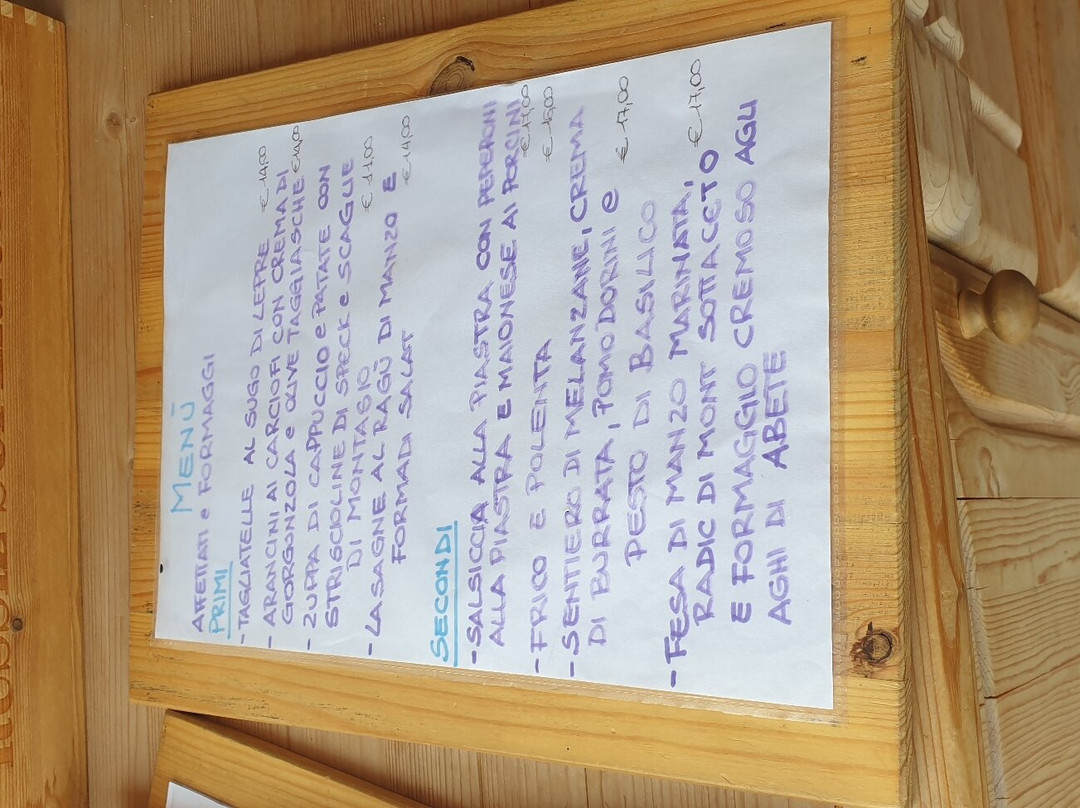 MENÙ
AFFETTATI e FORMAGGI
PRIMI
- TAGLIATELLE AL SUGO DI LEPRE € 14,00
- ARANCINI AI CARCIOFI CON CREMA DI
GORGONZOLA e OLIVE TAGGIASCHE
- ZUPPA DI CAPPUCCIO e PATATE CON
STRISCIOLINE DI SPECK e SCAGLIE
DI MONTASIO € 11,00
- LASAGNE AL RAGÙ DI MANZO E
FORMADI SALAT € 14,00
SECONDI
- SALSICCIA ALLA PIASTRA CON PEPERONI
ALLA PIASTRA E MAIONESE AI PORCINI € 17,00
- FRICO E POLENTA € 16,00
- SENTIERO DI MELANZANE, CREMA
DI BURRATA, POMODORINI e
PESTO DI BASILICO € 17,00
- FESA DI MANZO MARINATA,
RADIC DI MONT SOTTACETO € 17,00
E FORMAGGIO CREMOSO AGLI
AGHI DI ABETE